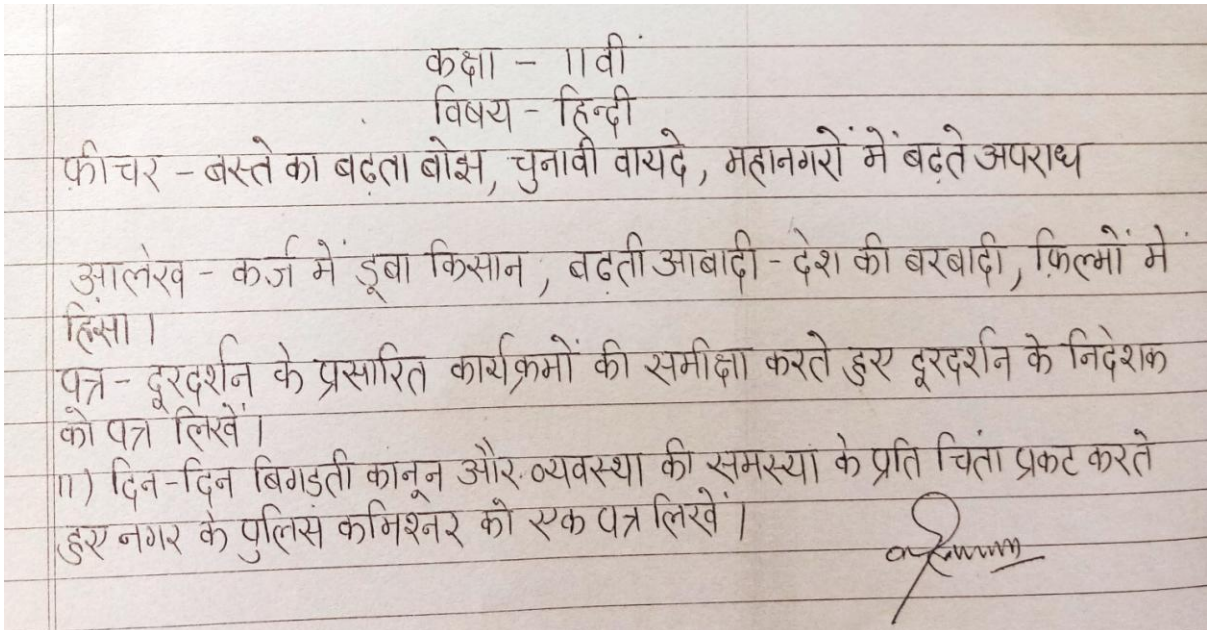 कक्षा - 11वीं
विषय - हिन्दी
फ़ीचर - बस्ते का बढ़ता बोझ, चुनावी वायदे, महानगरों में बढ़ते अपराध
आलेख - कर्ज में डूबा किसान, बढ़ती आबादी - देश की बरबादी, फ़िल्मों में
हिंसा।
पत्र - दूरदर्शन के प्रसारित कार्यक्रमों की समीक्षा करते हुए दूरदर्शन के निदेशक
को पत्र लिखें।
11) दिन-दिन बिगड़ती कानून और व्यवस्था की समस्या के प्रति चिंता प्रकट करते
हुए नगर के पुलिस कमिश्नर को एक पत्र लिखें।